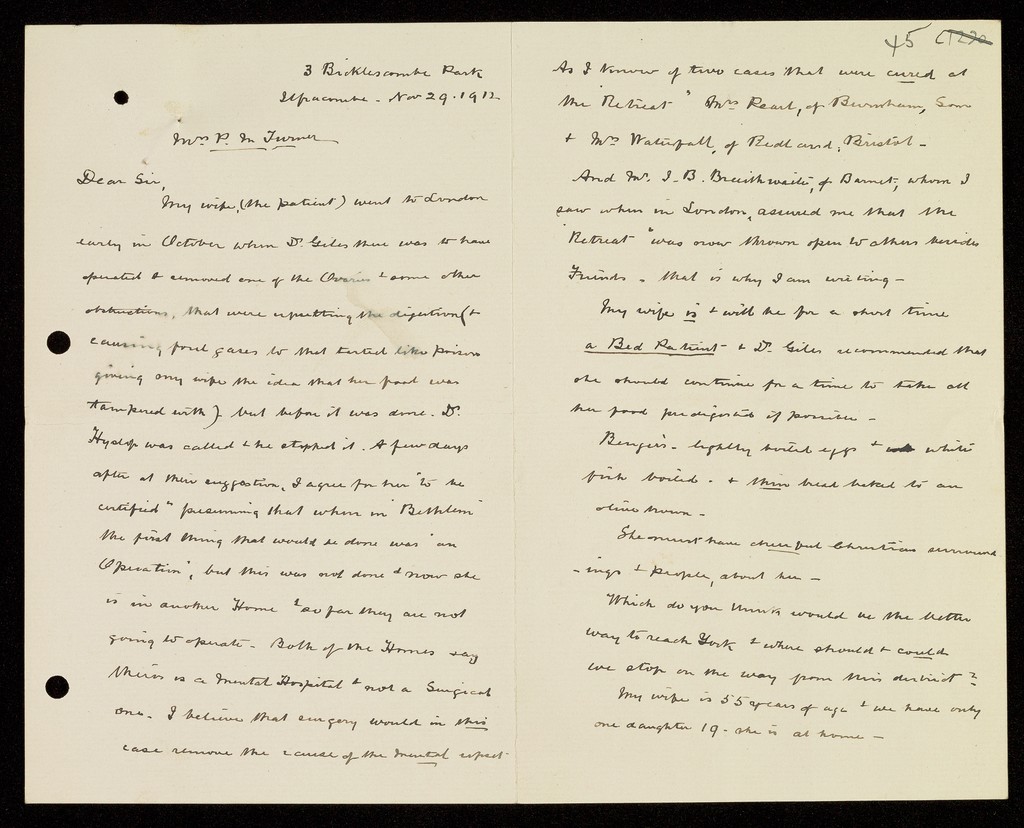 3 Bicklescombe Park
Ilfracombe - Nov 29. 1912
Mrs P. M Turner
Dear Sir,
My wife, (the patient) went to London
early in October when Dr. Giles there was to have
operated & removed one of the Ovaries & some other
obstructions, that were upsetting the digestion (&
causing foul gases to that tasted like poison
giving my wife the idea that her food was
tampered with) but before it was done. Dr.
Hyslop was called & he stopped it. A few days
after at their suggestion, I agree for her "to be
certified" presuming that when in Bethlem
the first thing that would be done was "an
Operation", but this was not done & now she
is in another Home & so far they are not
going to operate - Both of the Homes say
theirs is a Mental Hospital & not a Surgical
one. I believe that surgery would in this
case remove the cause of the mental upset
45
As I know of two cases that were cured at
the "Retreat" Mrs Pearl, of Burnham, Som
& Mrs Waterfall, of Redland, Bristol -
And Mr. J. B. Braithwaite, of Barnet, whom I
saw when in London, assured me that the
"Retreat" was now thrown open to others besides
Friends - that is why I am writing -
My wife is & will be for a short time
a Bed Patient & Dr. Giles recommended that
she should continue for a time to take all
her food predigested if possible -
Benger's - lightly boiled eggs & white
fish boiled. & thin bread baked to an
olive brown -
She must have cheerful Christian surround
-ings & people, about her -
Which do you think would be the better
way to reach York & where should & could
we stop on the way from this district?
My wife is 55 years of age & we have only
one daughter 19 - she is at home -